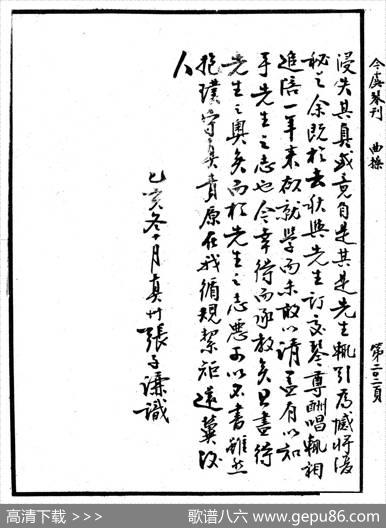 今虞琴刊 曲操 第二〇二頁
浸失其真或竟自是其是先生輒引爲憾將
秘之余既於去秋與先生訂交琴尊酬唱輒相
追陪一年來欲就學而未敢以請蓋有以知
乎先生之志也今幸得而承教矣且盡得
先生之奧矣而於先生之志惡可以不書雖然
抱璞守真責原在我循規絜矩遠冀後
人
己亥冬十月真州張子謙識
高清下载 >>>
歌谱八六 www.gepu86.com